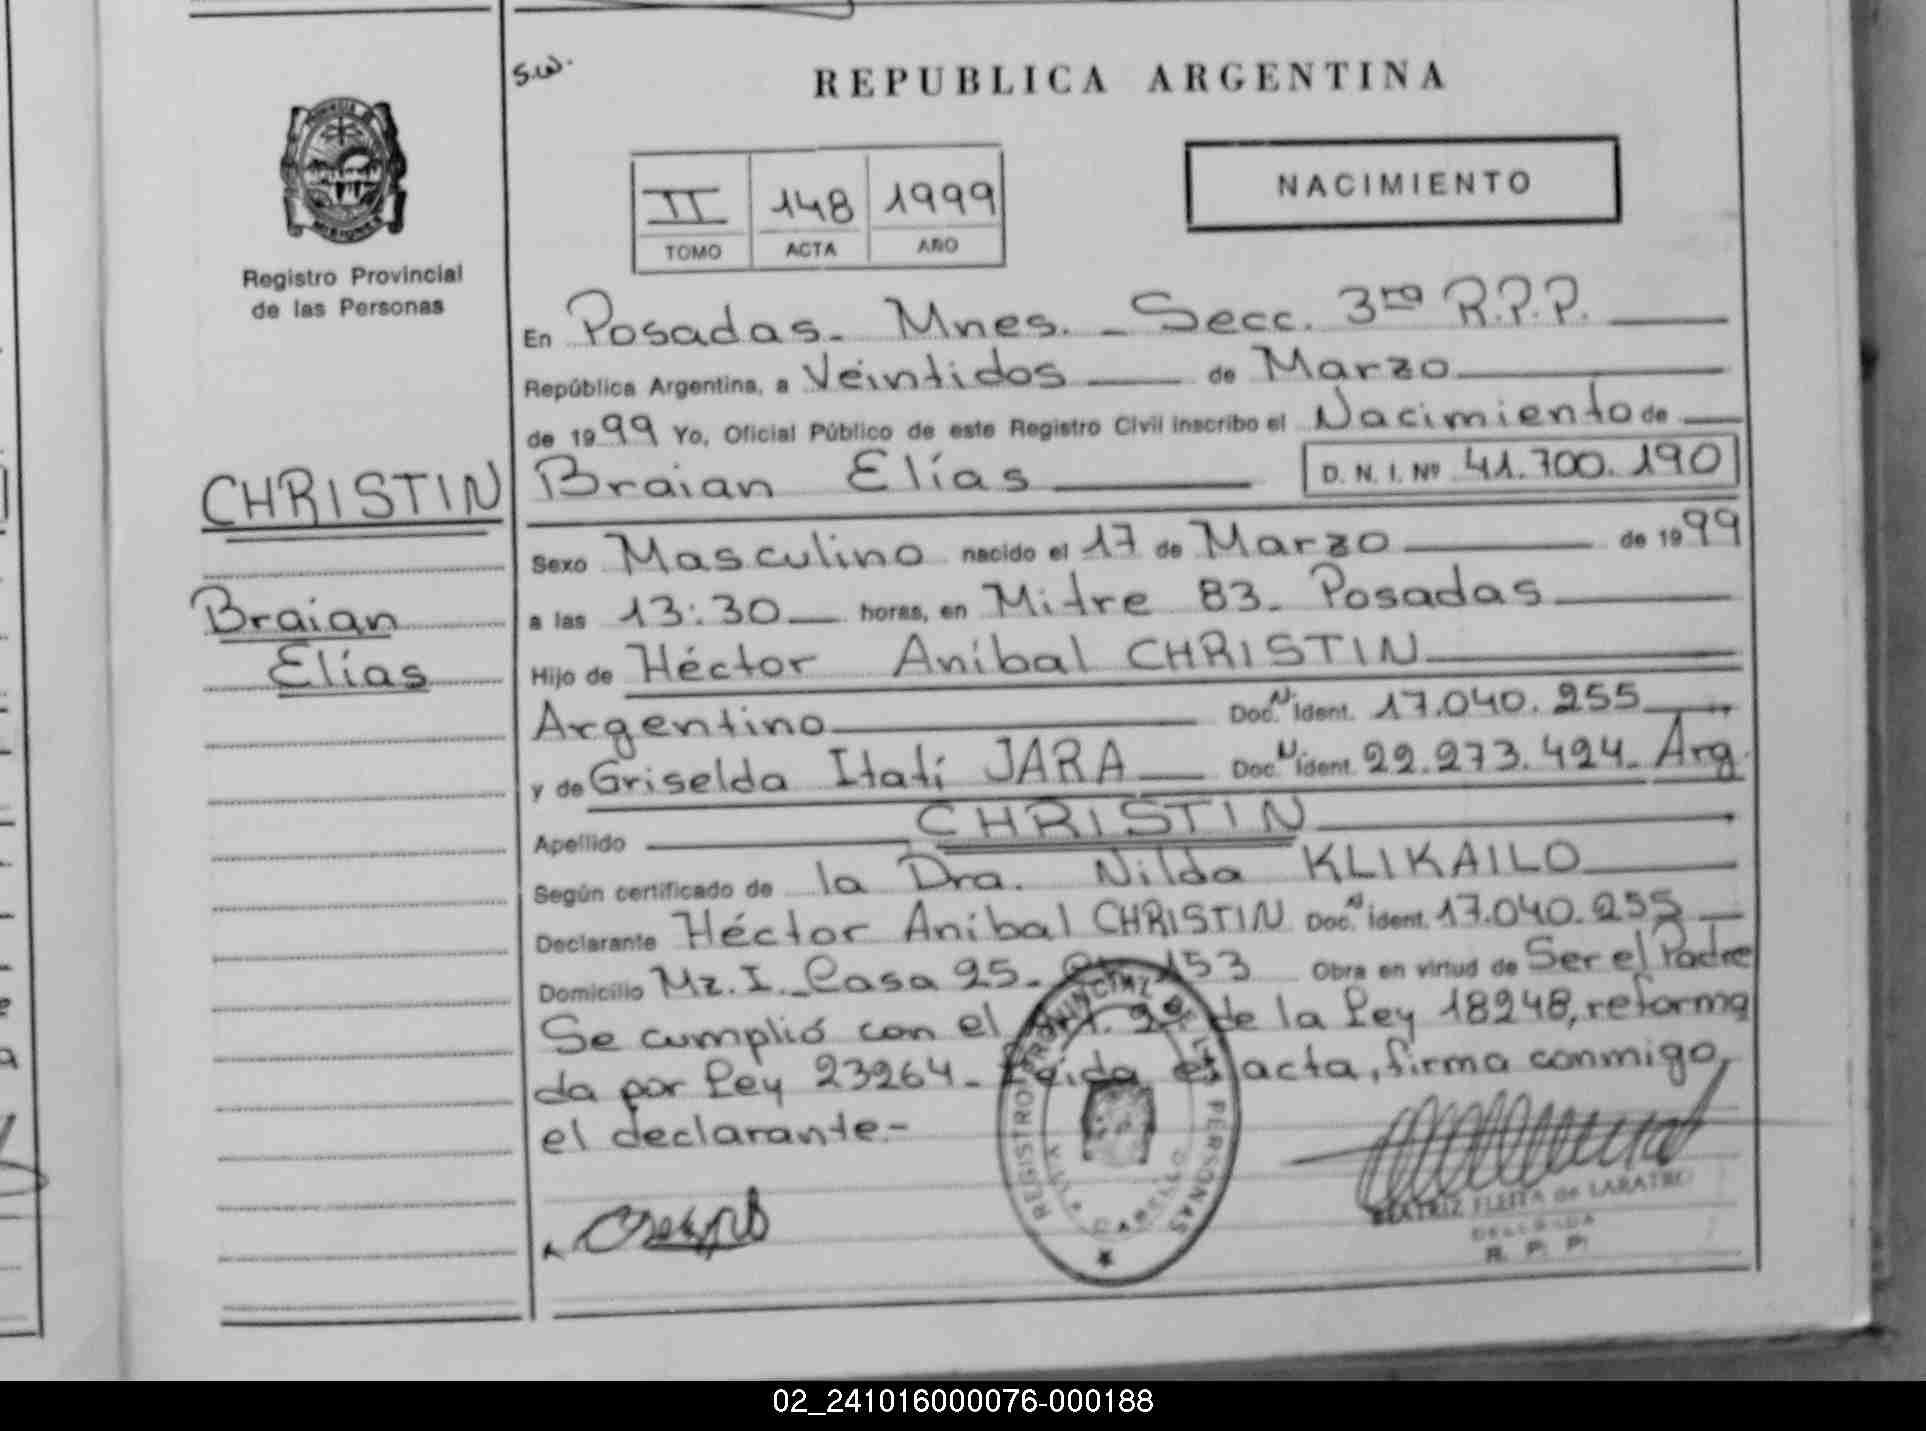 s.w.
REPUBLICA ARGENTINA
PROVINCIA DE
MISIONES
Registro Provincial
de las Personas
II 148 1999
TOMO ACTA AÑO
NACIMIENTO
En Posadas. Mnes. - Secc. 3ra R.P.P.
República Argentina, a Veintidos de Marzo
de 1999 Yo, Oficial Público de este Registro Civil inscribo el Nacimiento de
CHRISTIN
Braian Elías D. N. I. Nº 41.700.190
Sexo Masculino nacido el 17 de Marzo de 1999
Braian
a las 13:30 horas, en Mitre 83. Posadas
Elías
Hijo de Héctor Aníbal CHRISTIN
Argentino Doc. N Ident. 17.040.255
y de Griselda Itatí JARA Doc. N Ident. 22.273.424. Arg.
Apellido CHRISTIN
Según certificado de la Dra. Nilda KLIKAILO
Declarante Héctor Aníbal CHRISTIN Doc. N Ident. 17.040.255
Domicilio Mz. I. Casa 25. 153 Obra en virtud de Ser el Padre
Se cumplió con el Art. 2º de la Ley 18248, reforma
da por Ley 23264. Leida el acta, firma conmigo,
el declarante.-
REGISTRO PROVINCIAL DE LAS PERSONAS
BEATRIZ FLEITA de LABATRO
DELEGADA
R. P. P.
02_241016000076-000188